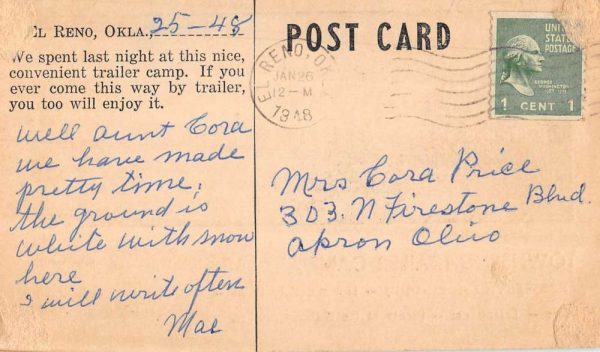 El Reno, Okla. 25-48
We spent last night at this nice,
convenient trailer camp. If you
ever come this way by trailer,
you too will enjoy it.
well aunt Cora
we have made
pretty time,
the ground is
white with snow
here
I will write often
Mae
POST CARD
EL RENO, OK
JAN 26
12-M
1948
UNITED
STATES
POSTAGE
GEORGE
WASHINGTON
1 CENT 1
Mrs Cora Price
303. N Firestone Blvd.
akron Ohio